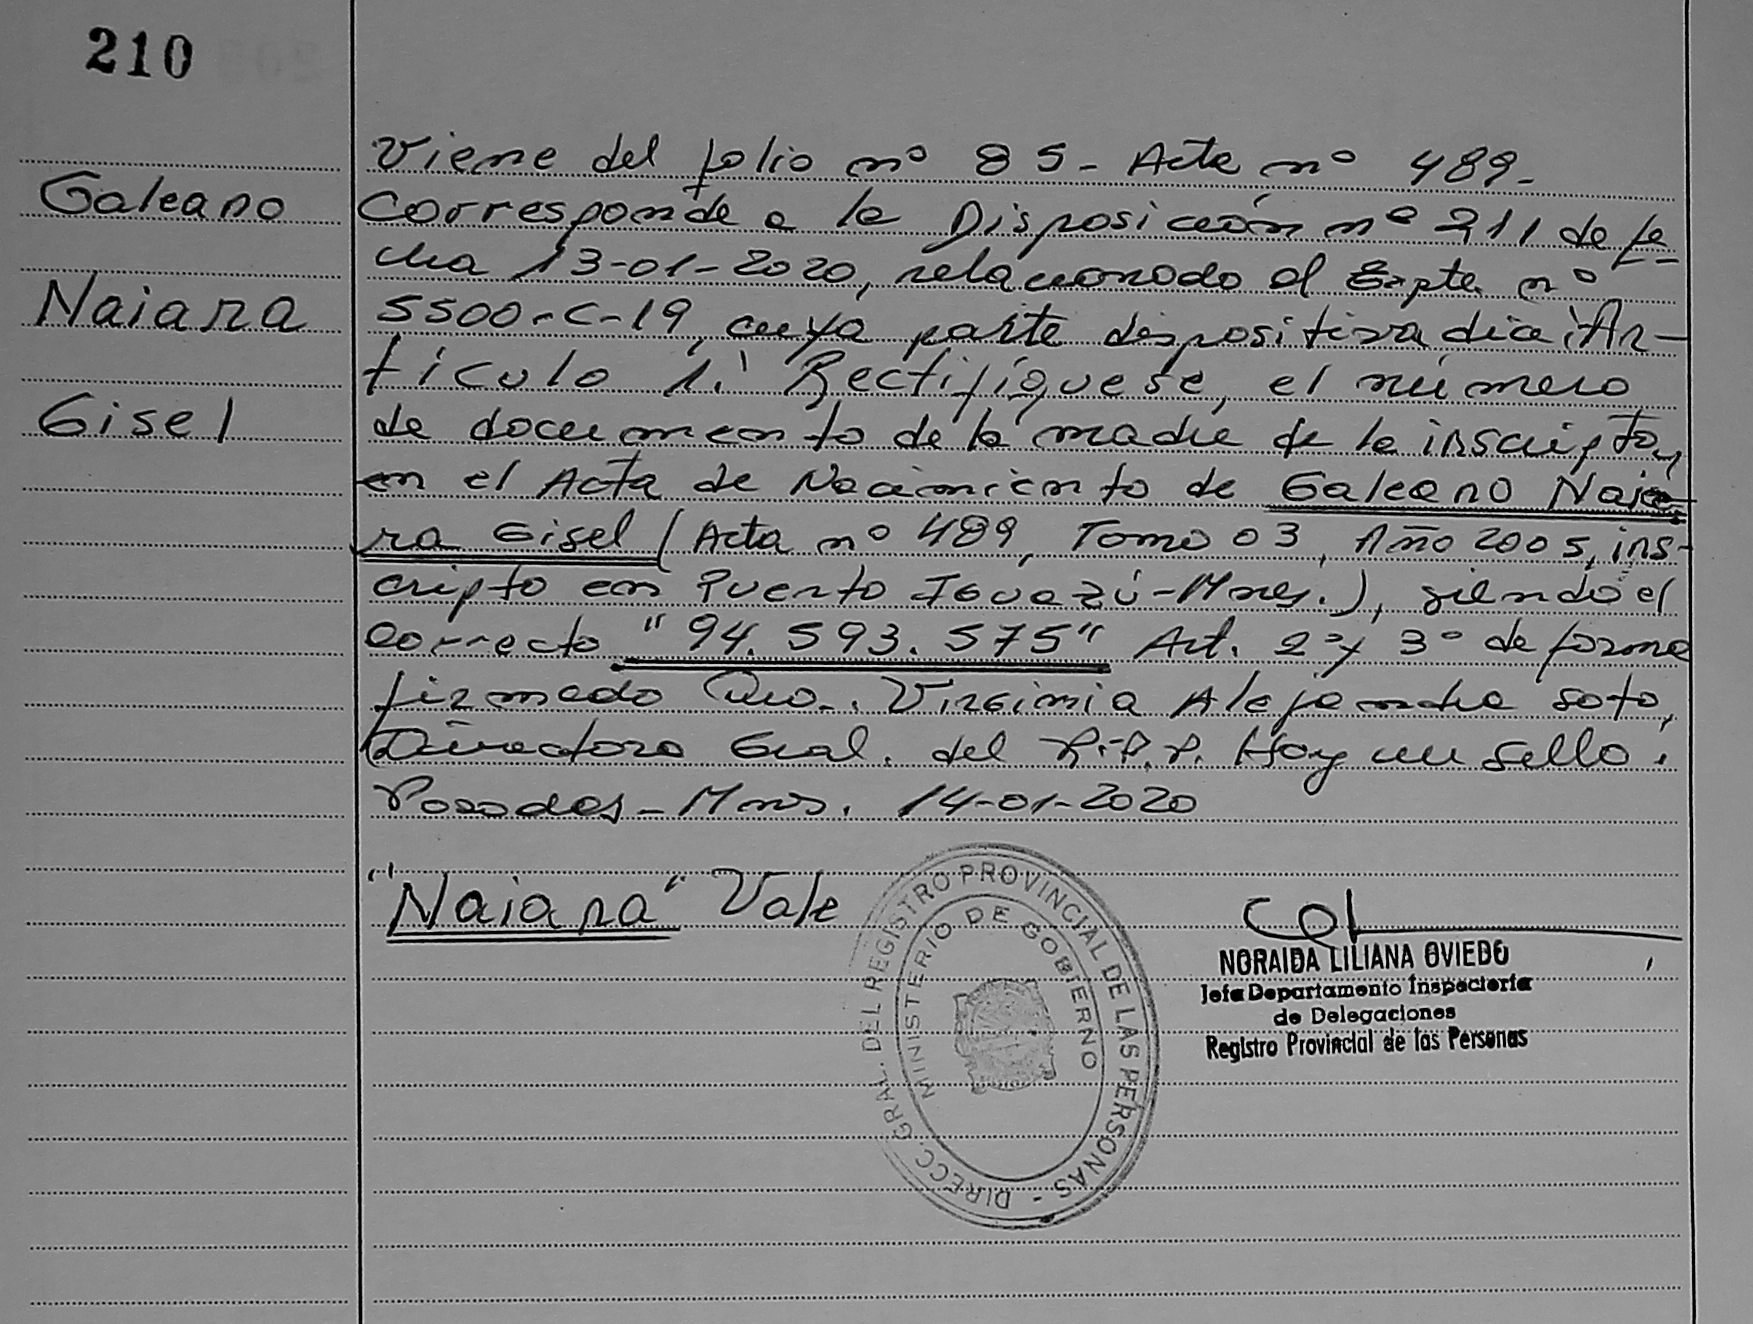 210
Galeano
Naiara
Gisel
Viene del folio nº 85- Acta nº 489-
Corresponde a la Disposición nº 211 de fe
cha 13-01-2020, relacionado al Expte. nº
5500-C-19, cuya parte dispositiva dice: "Ar-
tículo 1: Rectifíquese, el número
de documento de la madre de la inscripta,
en el Acta de Nacimiento de Galeano Naia
ra Gisel (Acta nº 489, Tomo 03, Año 2005, ins-
cripto en Puerto Iguazú-Mnes.), siendo el
correcto "94.593.575" Art. 2º y 3º de forma
firmado Virginia Alejandra Soto,
Directora Gral. del R.P.P. Hay un sello.
Posadas-Mnes. 14-01-2020
"Naiara" Vale
DIRECC. GRAL. DEL REGISTRO PROVINCIAL DE LAS PERSONAS -
MINISTERIO DE GOBIERNO
NORAIDA LILIANA OVIEDO
Jefa Departamento Inspectoría
de Delegaciones
Registro Provincial de las Personas